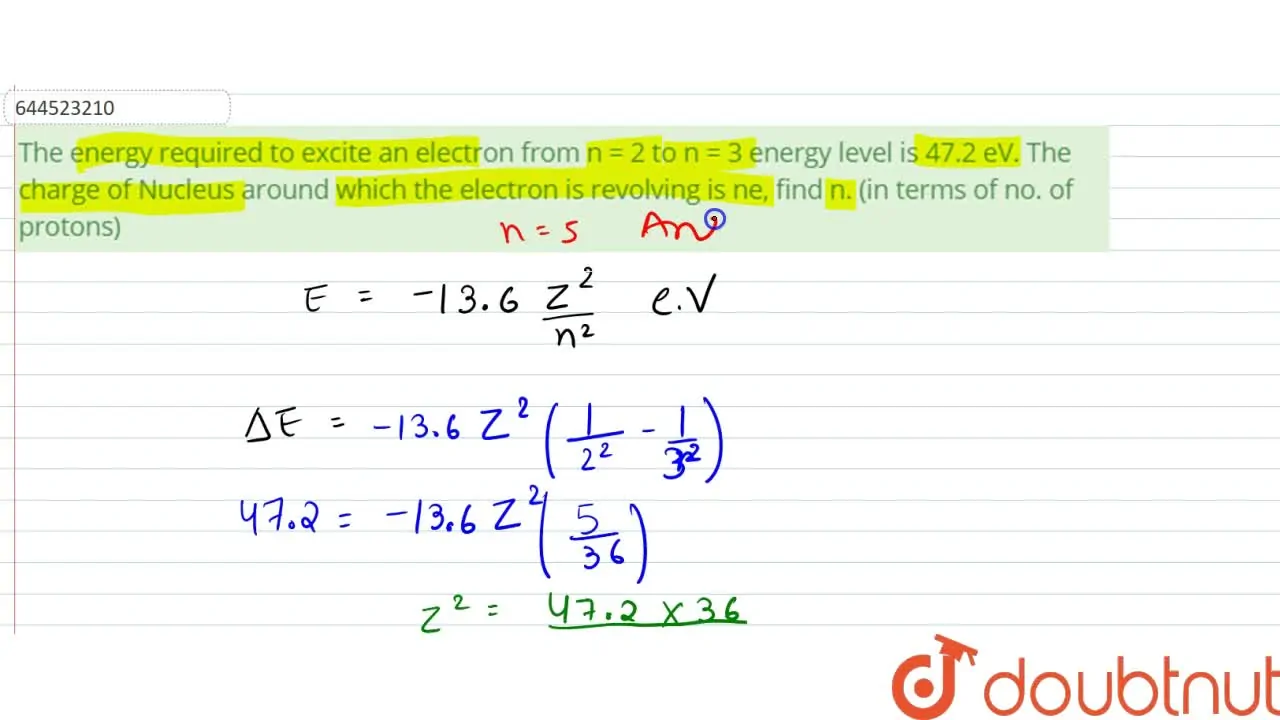 644523210
The energy required to excite an electron from n = 2 to n = 3 energy level is 47.2 eV. The
charge of Nucleus around which the electron is revolving is ne, find n. (in terms of no. of
protons)
n = 5 Ans
E = -13.6 Z²/n² e.V
ΔE = -13.6 Z² (1/2² - 1/3²)
47.2 = -13.6 Z² (5/36)
Z² = 47.2 × 36
doubtnut